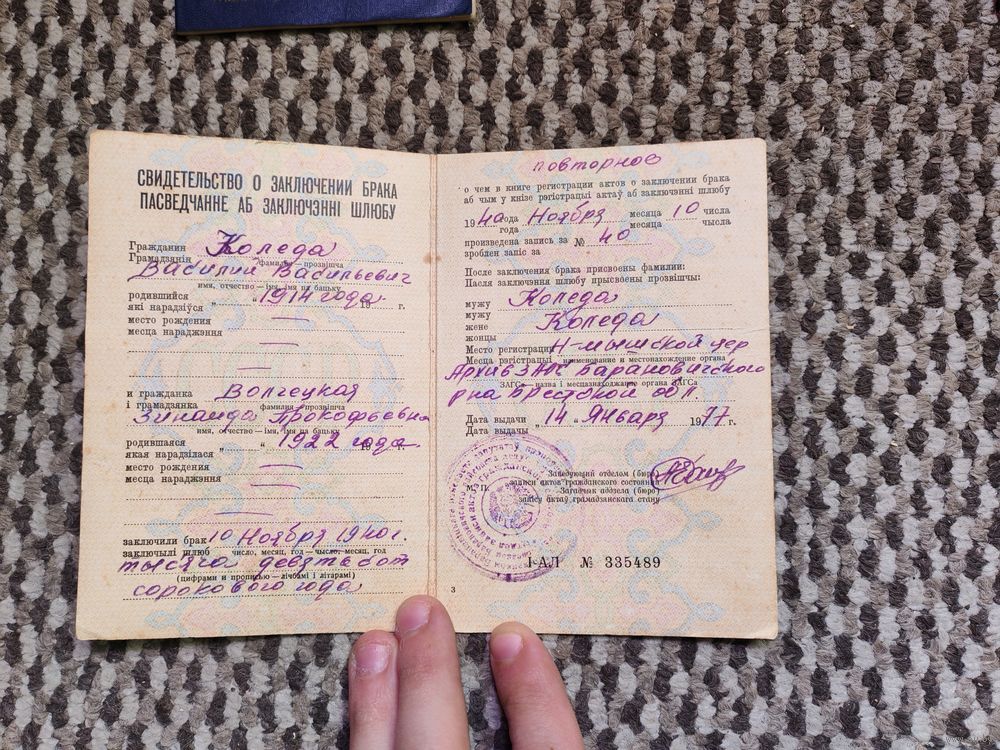 СВИДЕТЕЛЬСТВО О ЗАКЛЮЧЕНИИ БРАКА
ПАСВЕДЧАННЕ АБ ЗАКЛЮЧЭННІ ШЛЮБУ
Гражданин Коледа
Грамадзянін
фамилия — прозвішча
Василий Васильевич
имя, отчество — імя, імя па бацьку
родившийся „ “ 1914 года 19 г.
які нарадзіўся
место рождения —
месца нараджэння
—
—
и гражданка Волчецкая
і грамадзянка
фамилия — прозвішча
Зинаида Прокофьевна
имя, отчество — імя, імя па бацьку
родившаяся „ “ 1922 года 19 г.
якая нарадзілася
место рождения —
месца нараджэння —
—
заключили брак 10 Ноября 1940 г.
заключылі шлюб число, месяц, год — чысло, месяц, год
тысяча девятьсот
(цифрами и прописью — лічбамі і літарамі)
сорокового года
повторное
о чем в книге регистрации актов о заключении брака
аб чым у кнізе рэгістрацыі актаў аб заключэнні шлюбу
1940 года Ноября месяца 10 числа
года месяца чысла
произведена запись за № 40
зроблен запіс за
После заключения брака присвоены фамилии:
Пасля заключэння шлюбу прысвоены прозвішчы:
мужу Коледа
мужу
жене Коледа
жонцы
Место регистрации Н-мышской дер
Месца рэгістрацыі наименование и местонахождение органа
Архив ЗАГС Барановичского
ЗАГСа — назва і месцазнаходжанне органа ЗАГСа
р-на Брестской обл.
Дата выдачи „14“ Января 1977 г.
Дата выдачы
Заведующий отделом (бюро)
М. П. записи актов гражданского состояния
Загадчык аддзела (бюро)
запісу актаў грамадзянскага стану
І-АЛ № 335489
3